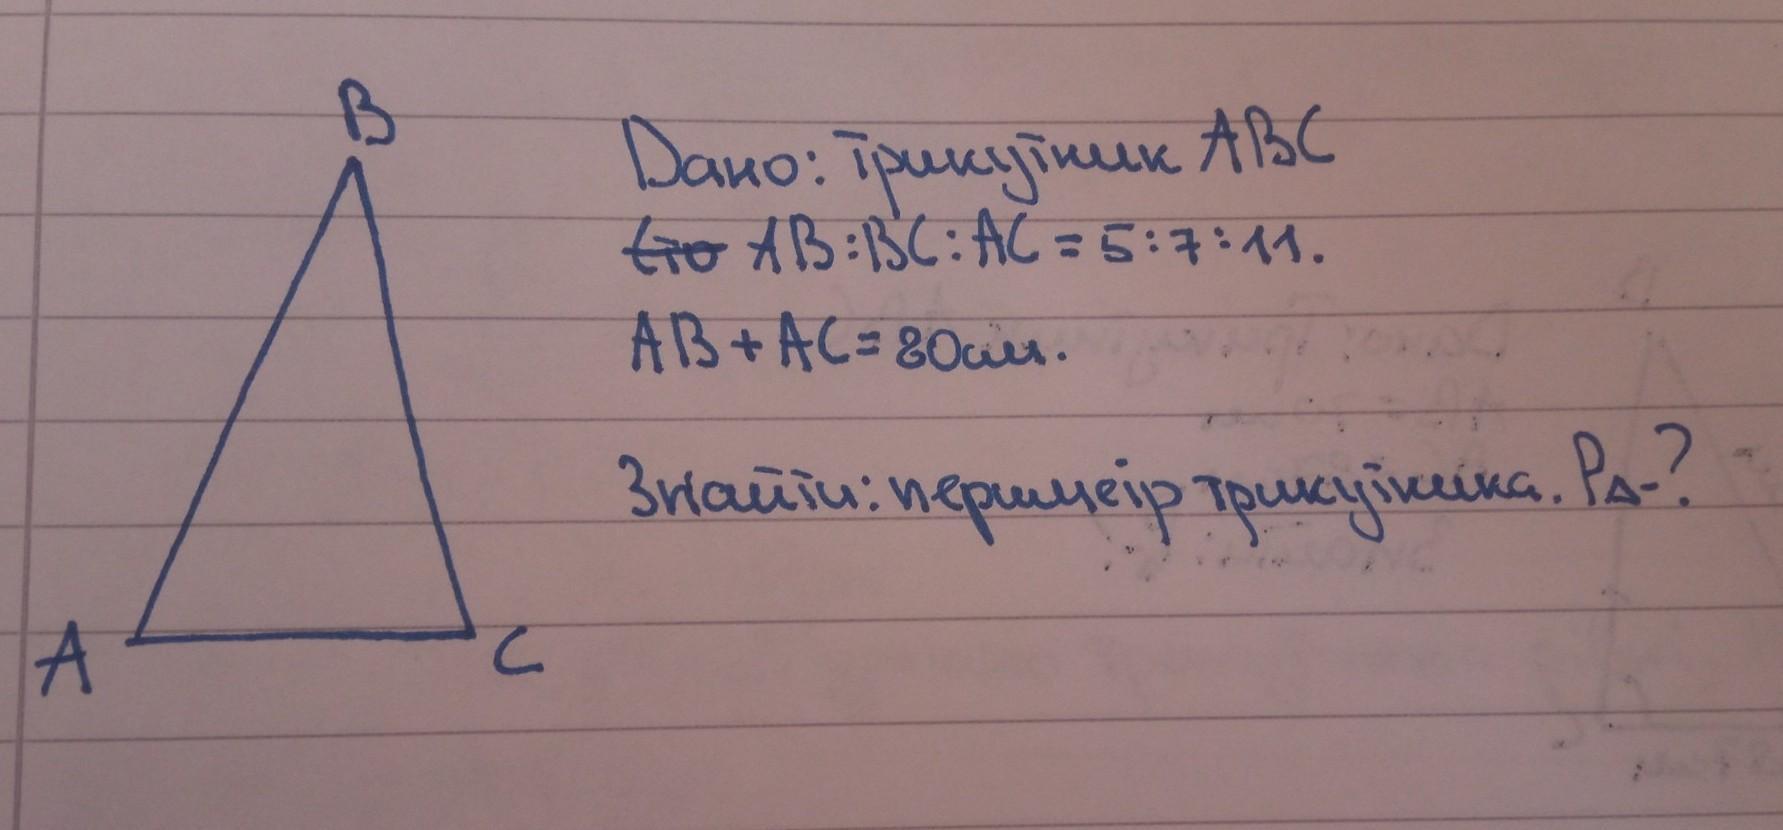 B
Дано: трикутник ABC
AB:BC:AC = 5:7:11.
AB + AC = 80см.
Знайти: периметр трикутника. P∆-?
A
C